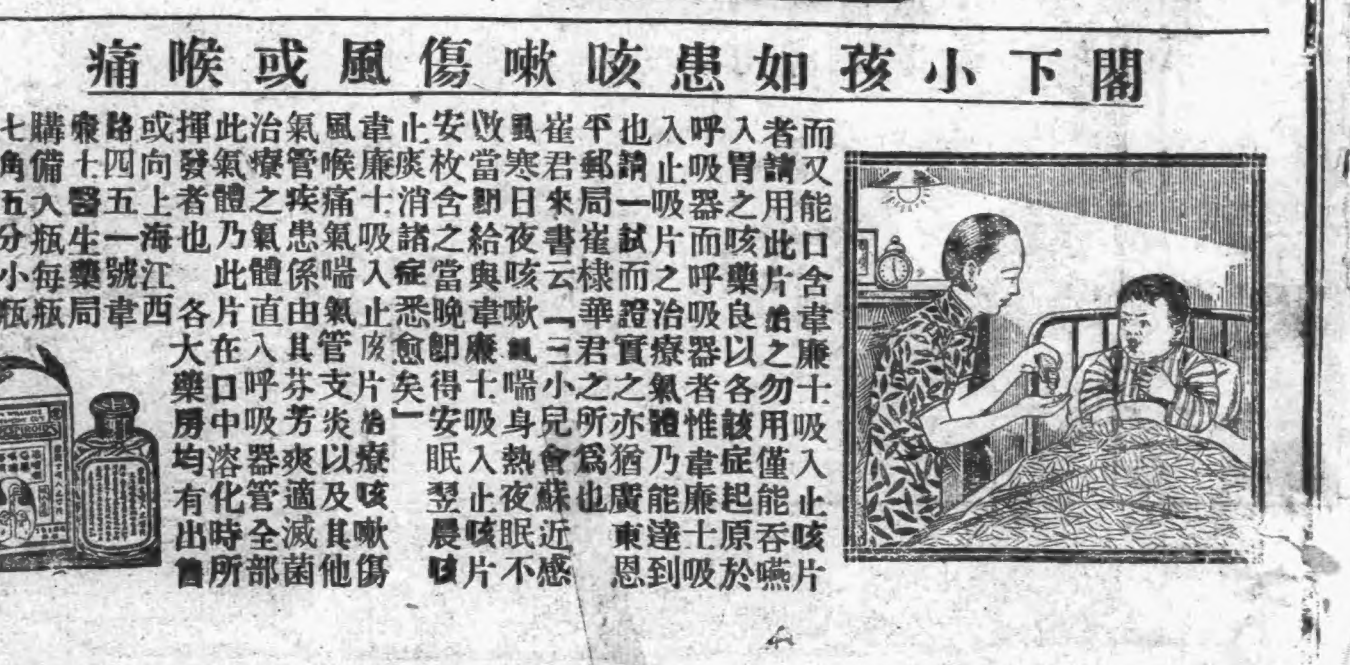 閣下小孩如患咳嗽傷風或喉痛
而又能口含韋廉士吸入止咳片
者請用此片治之勿用僅能吞嚥
入胃之咳藥良以各該症起原於
呼吸器而呼吸器者惟韋廉士吸
入止吸片之治療氣體乃能達到
也請一試而證實之亦猶廣東恩
平郵局崔棣華君之所爲也
崔君來書云「三小兒會蘇近感
風寒日夜咳嗽氣喘身熱夜眠不
數當卽給與韋廉士吸入止咳片
安枚含之當晚卽得安眠翌晨咳
止痰消諸症悉愈矣」
韋廉士吸入止咳片治療咳嗽傷
風喉痛氣喘氣管支炎以及其他
氣管疾患係由其芬芳爽適滅菌
治療之氣體直入呼吸器管全部
此氣體乃此片在口中溶化時所
揮發者也 各大藥房均有出售
或向上海江西
路四五一號韋
廉士醫生藥局
購備大瓶每瓶
七角五分小瓶